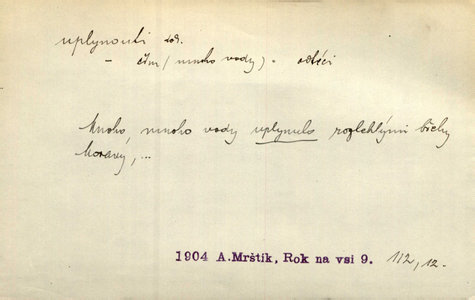 uplynouti dok.
– čím (mnoho vody) - odtéci
Mnoho, mnoho vody uplynulo rozlehlými břehy
Moravy, ...
1904 A.Mrštík, Rok na vsi 9. 112, 12.